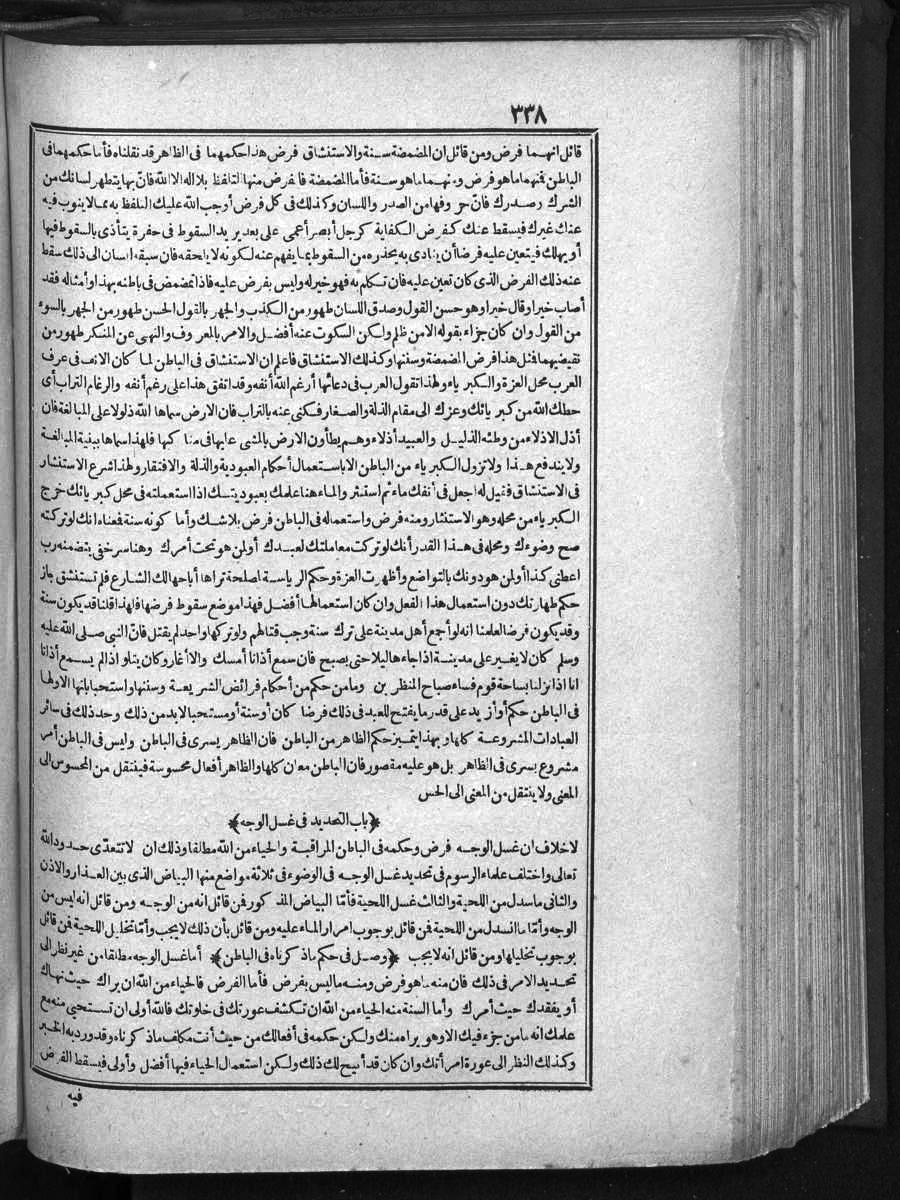 ٣٣٨
قائل انهما فرض ومن قائل ان المضمضة سنة والاستنشاق فرض هذا حكمهما فى الظاهر قد نقلناه فأما حكمهما فى
الباطن فمنهما ما هو فرض ومنهما ما هو سنة فأما المضمضة فالفرض منها التلفظ بلا اله الا الله فان بها يتطهر لسانك من
الشرك وصدرك فان حروفها من الصدر واللسان وكذلك فى كل فرض أوجب الله عليك التلفظ به مما لا ينوب فيه
عنك غيرك فيسقط عنك كفرض الكفاية كرجل أبصر أعمى على بعد يريد السقوط فى حفرة يتأذى بالسقوط فيها
أو يهلك فيتعين عليه فرضا أن ينادى به يحذره من السقوط بما يفهم عنه لكونه لا يلحقه فان سبقه انسان الى ذلك سقط
عنه ذلك الفرض الذى كان تعين عليه فان تكلم به فهو خير له وليس بفرض عليه فاذا تمضمض فى باطنه بهذا وأمثاله فقد
أصاب خيرا وقال خيرا وهو حسن القول وصدق اللسان طهور من الكذب والجهر بالقول الحسن طهور من الجهر بالسوء
من القول وان كان جزاء بقوله الا من ظلم ولكن السكوت عنه أفضل والامر بالمعروف والنهى عن المنكر طهور من
نقيضهما فمثل هذا فرض المضمضة وسنتها وكذلك الاستنشاق فاعلم ان الاستنشاق فى الباطن لما كان الانف فى عرف
العرب محل العزة والكبرياء ولهذا تقول العرب فى دعائها أرغم الله أنفه وقد اتفق هذا على رغم أنفه والرغام التراب أى
حطك الله من كبريائك وعزك الى مقام الذلة والصغار فكنى عنه بالتراب فان الارض سماها الله ذلولا على المبالغة فان
أذل الاذلاء من وطئه الذليل والعبيد أذلاء وهم يطأون الارض بالمشى عليها فى مناكبها فلهذا سماها ببنية المبالغة
ولا يندفع هذا ولا تزول الكبرياء من الباطن الا باستعمال أحكام العبودية والذلة والافتقار ولهذا شرع الاستنثار
فى الاستنشاق فقيل له اجعل فى أنفك ماء ثم استنثر والماء هنا علمك بعبوديتك اذا استعملته فى محل كبريائك خرج
الكبرياء من محله وهو الاستنثار ومنه فرض واستعماله فى الباطن فرض بلا شك وأما كونه سنة فمعناه انك لو تركته
صح وضوءك ومحله فى هذا القدر أنك لو تركت معاملتك لعبدك أو لمن هو تحت أمرك وهنا سر خفى يتضمنه رب
اعطنى كذا أو لمن هو دونك بالتواضع وأظهرت العزة وحكم الرياسة لمصلحة تراها أباحها لك الشارع فلم تستنشق جاز
حكم طهارتك دون استعمال هذا الفعل وان كان استعمالها أفضل فهذا موضع سقوط فرضها فلهذا قلنا قد يكون سنة
وقد يكون فرضا لعلمنا انه لو أجمع أهل مدينة على ترك سنة وجب قتالهم ولو تركها واحد لم يقتل فان النبى صلى الله عليه
وسلم كان لا يغير على مدينة اذا جاءها ليلا حتى يصبح فان سمع أذانا أمسك والا أغار وكان يتلو اذا لم يسمع أذانا
انا اذا نزلنا بساحة قوم فساء صباح المنظرين وما من حكم من أحكام فرائض الشريعة وسننها واستحباباتها الا ولها
فى الباطن حكم أو أزيد على قدر ما يفتح للعبد فى ذلك فرضا كان أو سنة أو مستحبا لابد من ذلك وحد ذلك فى سائر
العبادات المشروعة كلها وبهذا يتميز حكم الظاهر من الباطن فان الظاهر يسرى فى الباطن وليس فى الباطن أمر
مشروع يسرى فى الظاهر بل هو عليه مقصور فان الباطن معان كلها والظاهر أفعال محسوسة فينتقل من المحسوس الى
المعنى ولا ينتقل من المعنى الى الحس
﴿باب التحديد فى غسل الوجه﴾
لا خلاف ان غسل الوجه فرض وحكمه فى الباطن المراقبة والحياء من الله مطلقا وذلك ان لا تتعدى حدود الله
تعالى واختلف علماء الرسوم فى تحديد غسل الوجه فى الوضوء فى ثلاثة مواضع منها البياض الذى بين العذار والاذن
والثانى ما سدل من اللحية والثالث غسل اللحية فأما البياض المذكور فمن قائل انه من الوجه ومن قائل انه ليس من
الوجه وأما ما انسدل من اللحية فمن قائل بوجوب امرار الماء عليه ومن قائل بأن ذلك لا يجب وأما تخليل اللحية فمن قائل
بوجوب تخليلها ومن قائل انه لا يجب ﴿وصل فى حكم ما ذكرناه فى الباطن﴾ أما غسل الوجه مطلقا من غير نظر الى
تحديد الامر فى ذلك فان منه ما هو فرض ومنه ما ليس بفرض فأما الفرض فالحياء من الله ان يراك حيث نهاك
أو يفقدك حيث أمرك وأما السنة منه الحياء من الله ان تكشف عورتك فى خلوتك فالله أولى ان تستحيى منه مع
علمك انه ما من جزء فيك الا وهو يراه منك ولكن حكمه فى أفعالك من حيث أنت مكلف ما ذكرناه وقد ورد به الخبر
وكذلك النظر الى عورة امرأتك وان كان قد أبيح لك ذلك ولكن استعمال الحياء فيها أفضل وأولى فيسقط الفرض
فيه